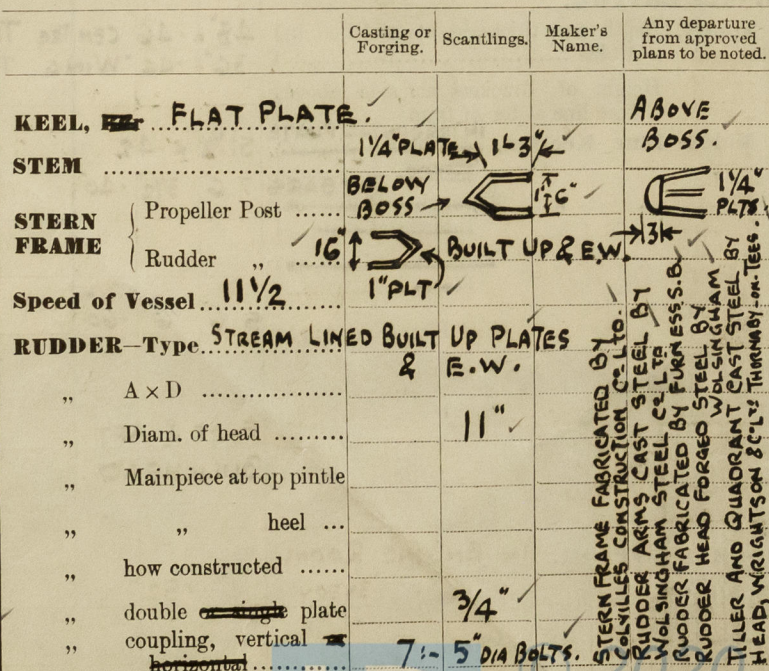 Casting or Forging. Scantlings. Maker's Name. Any departure from approved plans to be noted.
KEEL, FLAT PLATE. ABOVE BOSS.
STEM 1¼" PLATE 1' 3"
STERN FRAME { Propeller Post BELOW BOSS 1' 6" 1¼" PLTS.
Rudder „ 16" BUILT UP & E.W. 3
1" PLT
Speed of Vessel 11½
RUDDER—Type STREAM LINED BUILT UP PLATES & E.W.
„ A × D
„ Diam. of head 11"
„ Mainpiece at top pintle
„ „ heel ...
„ how constructed
„ double or single plate 3/4"
„ coupling, vertical or horizontal 7:- 5" DIA BOLTS.
STERN FRAME FABRICATED BY
COLVILLES CONSTRUCTION Co LTD.
RUDDER ARMS CAST STEEL BY
WOLSINGHAM STEEL Co LTD
RUDDER FABRICATED BY FURNESS S.B.
RUDDER HEAD FORGED STEEL BY
WOLSINGHAM
TILLER AND QUADRANT CAST STEEL BY
HEAD, WRIGHTSON & Co LTD THORNABY-ON-TEES.